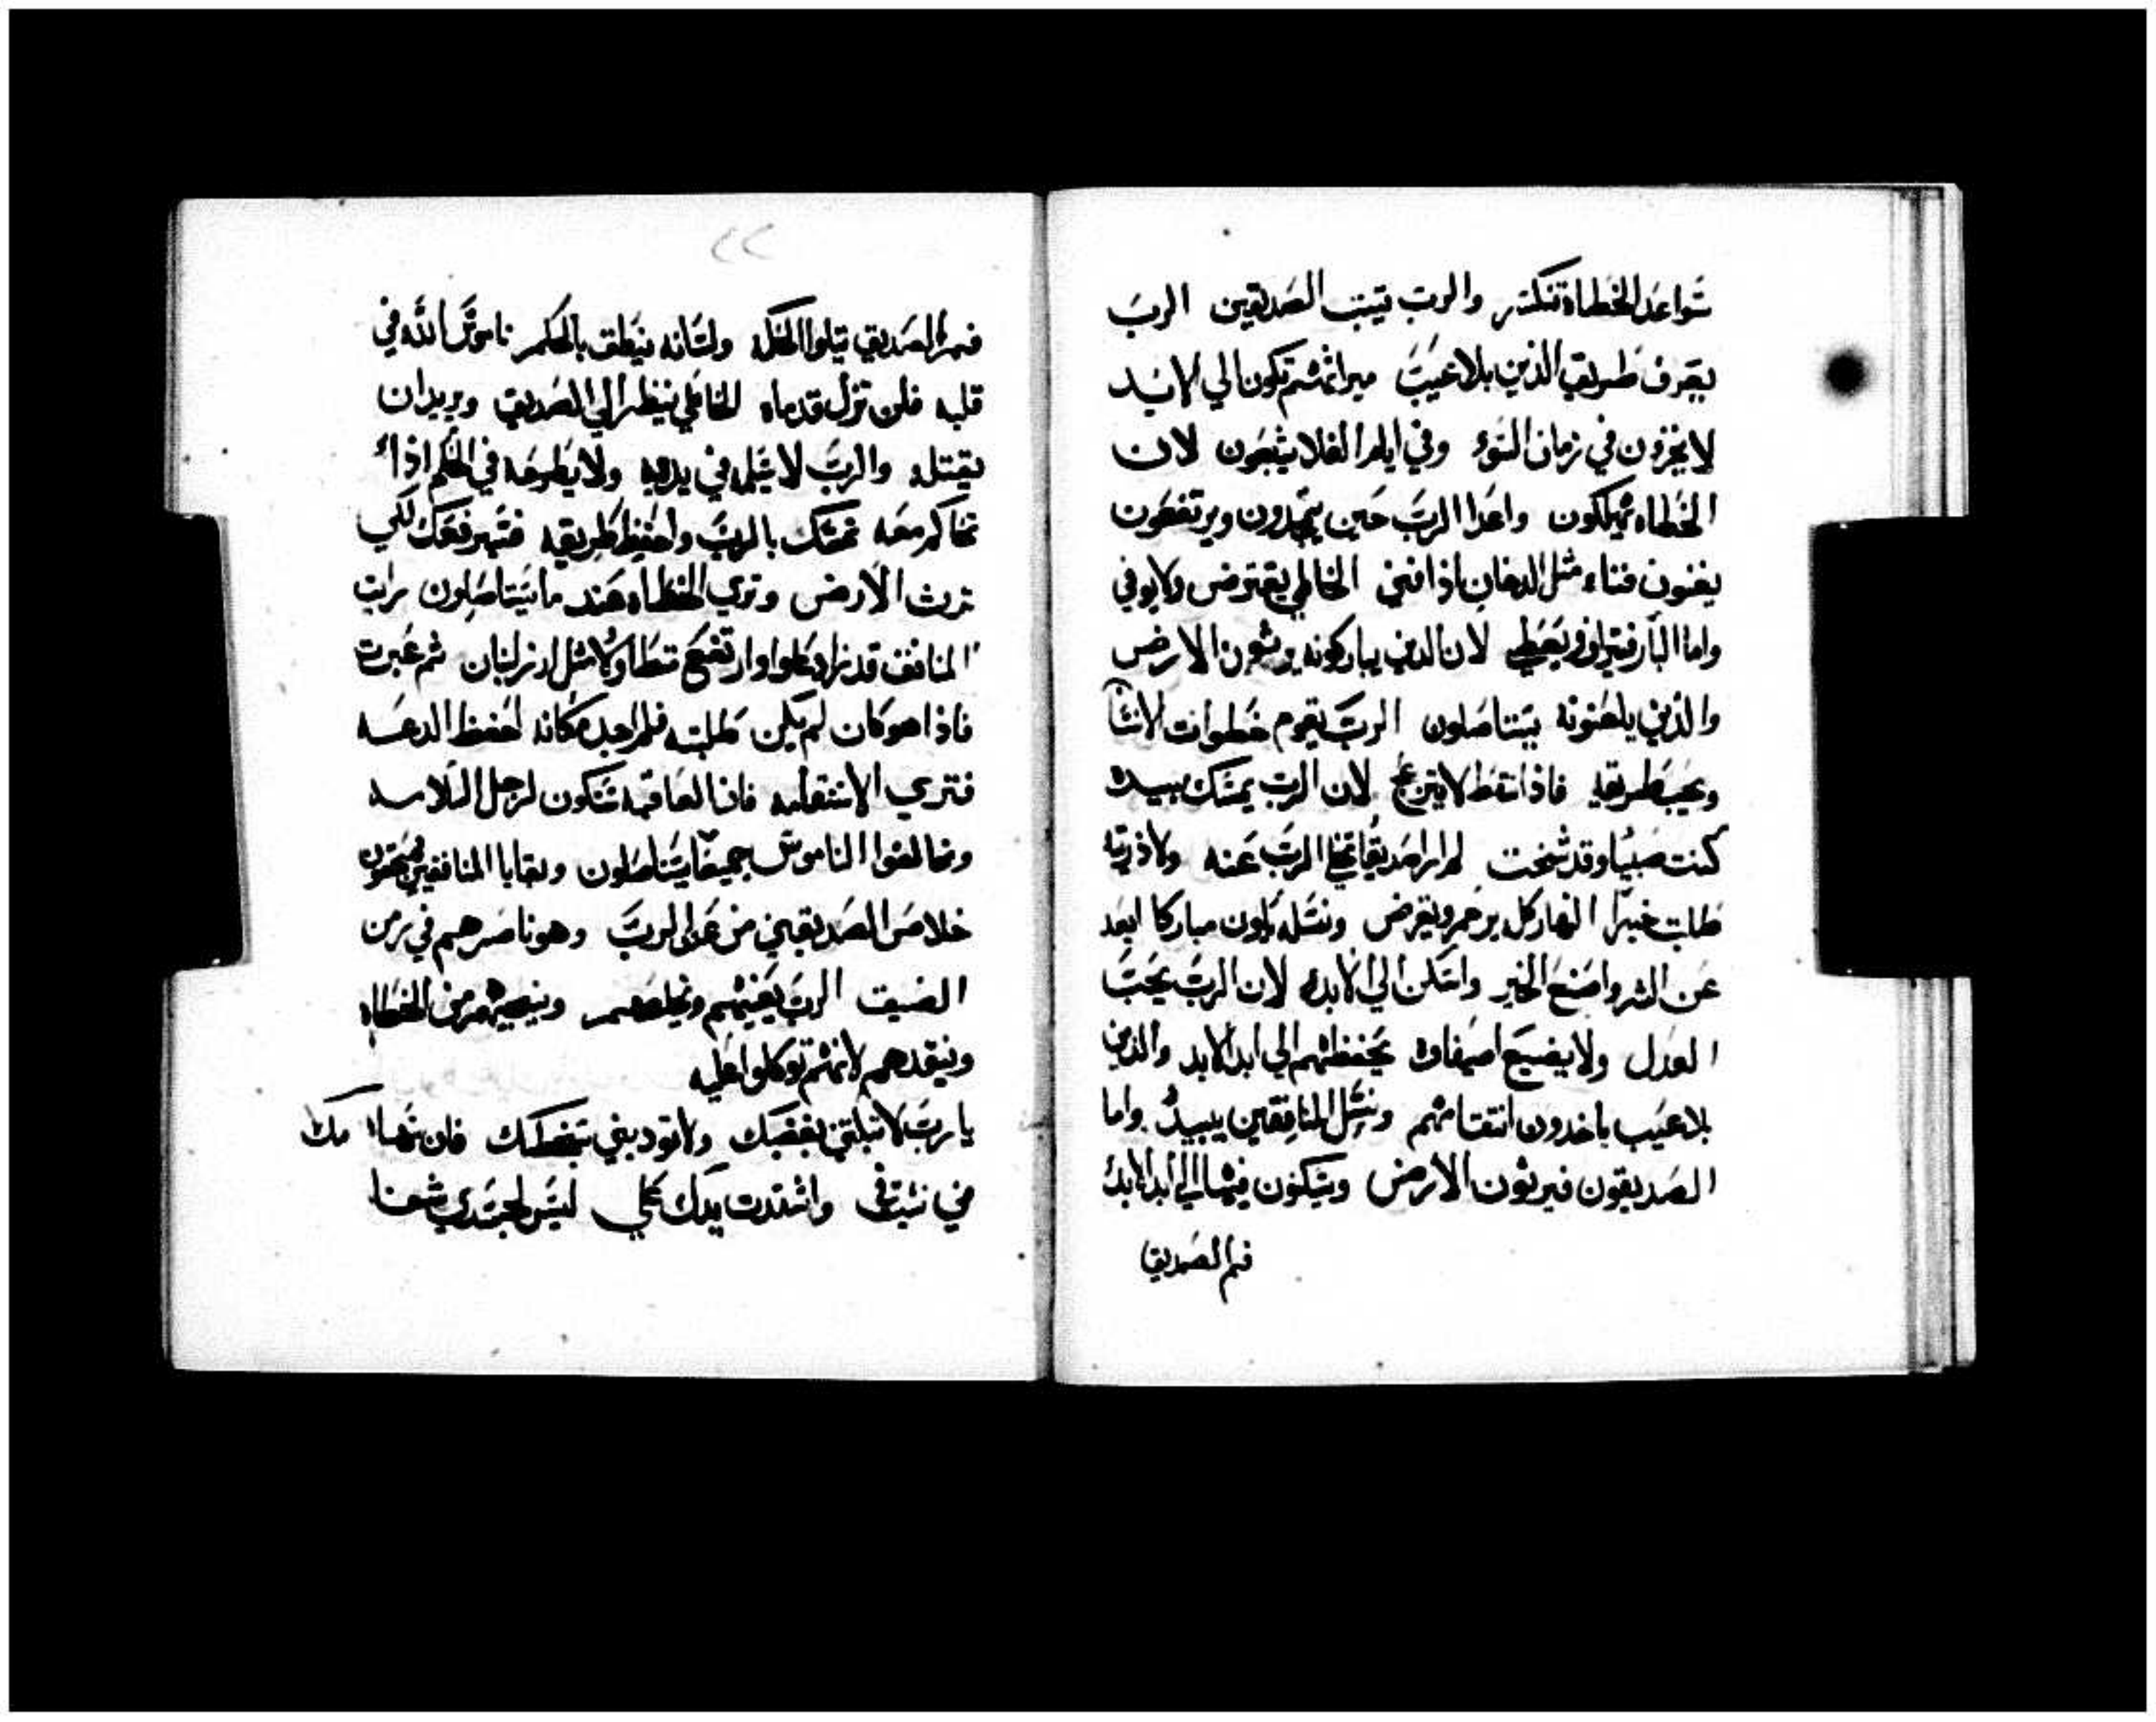 سواعد الخطاة تنكسر والرب يثبت الصديقين الرب
يعرف طريق الذين بلا عيب ميراثهم تكون الي الابد
لا يخزون في زمان السوء وفي ايام الغلا يشبعون لان
الخطاه يهلكون واعدا الرب حين يتمجدون ويرتفعون
يفنون فناء مثل الدخان اذا فني الخاطي يقترض ولا يوفي
واما البار فيتراوف ويعطي لان الذين يباركونه يرثون الارض
والذين يلعنونه يستاصلون الرب يقوم خطوات الانسا
ويحب طريقه فاذا سقط لا ينزعج لان الرب يمسك بيده
كنت صبيا وقد شخت لم ارا صديقا تخلا الرب عنه ولا ذريته
طلبت خبزا النهار كل يرحم ويقرض ونسله يكون مباركا ابعد
عن الشر واصنع الخير واسكن الي الابد لان الرب يحب
العدل ولا يضيع اصفياه يحفظهم الي ابد الابد والذين
بلا عيب ياخدون انتقامهم ونسل المنافقين يبيد واما
الصديقون فيرثون الارض ويسكنون فيها الي ابد الابد
فم الصديق
٢٢
فم الصديق يتلوا الحكمه ولسانه ينطق بالحكم ناموس الله في
قلبه فلن تزل قدماه الخاطي ينظر الي الصديق ويريد ان
يقتله والرب لا يسلمه في يديه ولا يطرحه في الحكم اذا
تحاكم معه تمسك بالرب واحفظ طريقه فسيرفعك لكي
ترث الارض وتري الخطاه عند ما يستاصلون رايت
المنافق قد تزايد علوا وارتفع متطاولا مثل ارز لبنان ثم عبرت
فاذا هو كان لم يكن طلبته فلم اجد مكانه احفظ الدعه
فتري الاستقامه فان العاقبه ستكون لرجل السلامه
ومخالفوا الناموس جميعا يستاصلون وبقايا المنافقين يمحقون
خلاص الصديقين من عند الرب وهو ناصرهم في زمن
الضيق الرب يعينهم ويخلصهم وينجيهم من الخطاه
وينقدهم لانهم توكلوا عليه
يا رب لا تبكتني بغضبك ولا تودبني بسخطك فان سهامك
في نشبت واشتدت يدك علي ليس لجسدي شفا